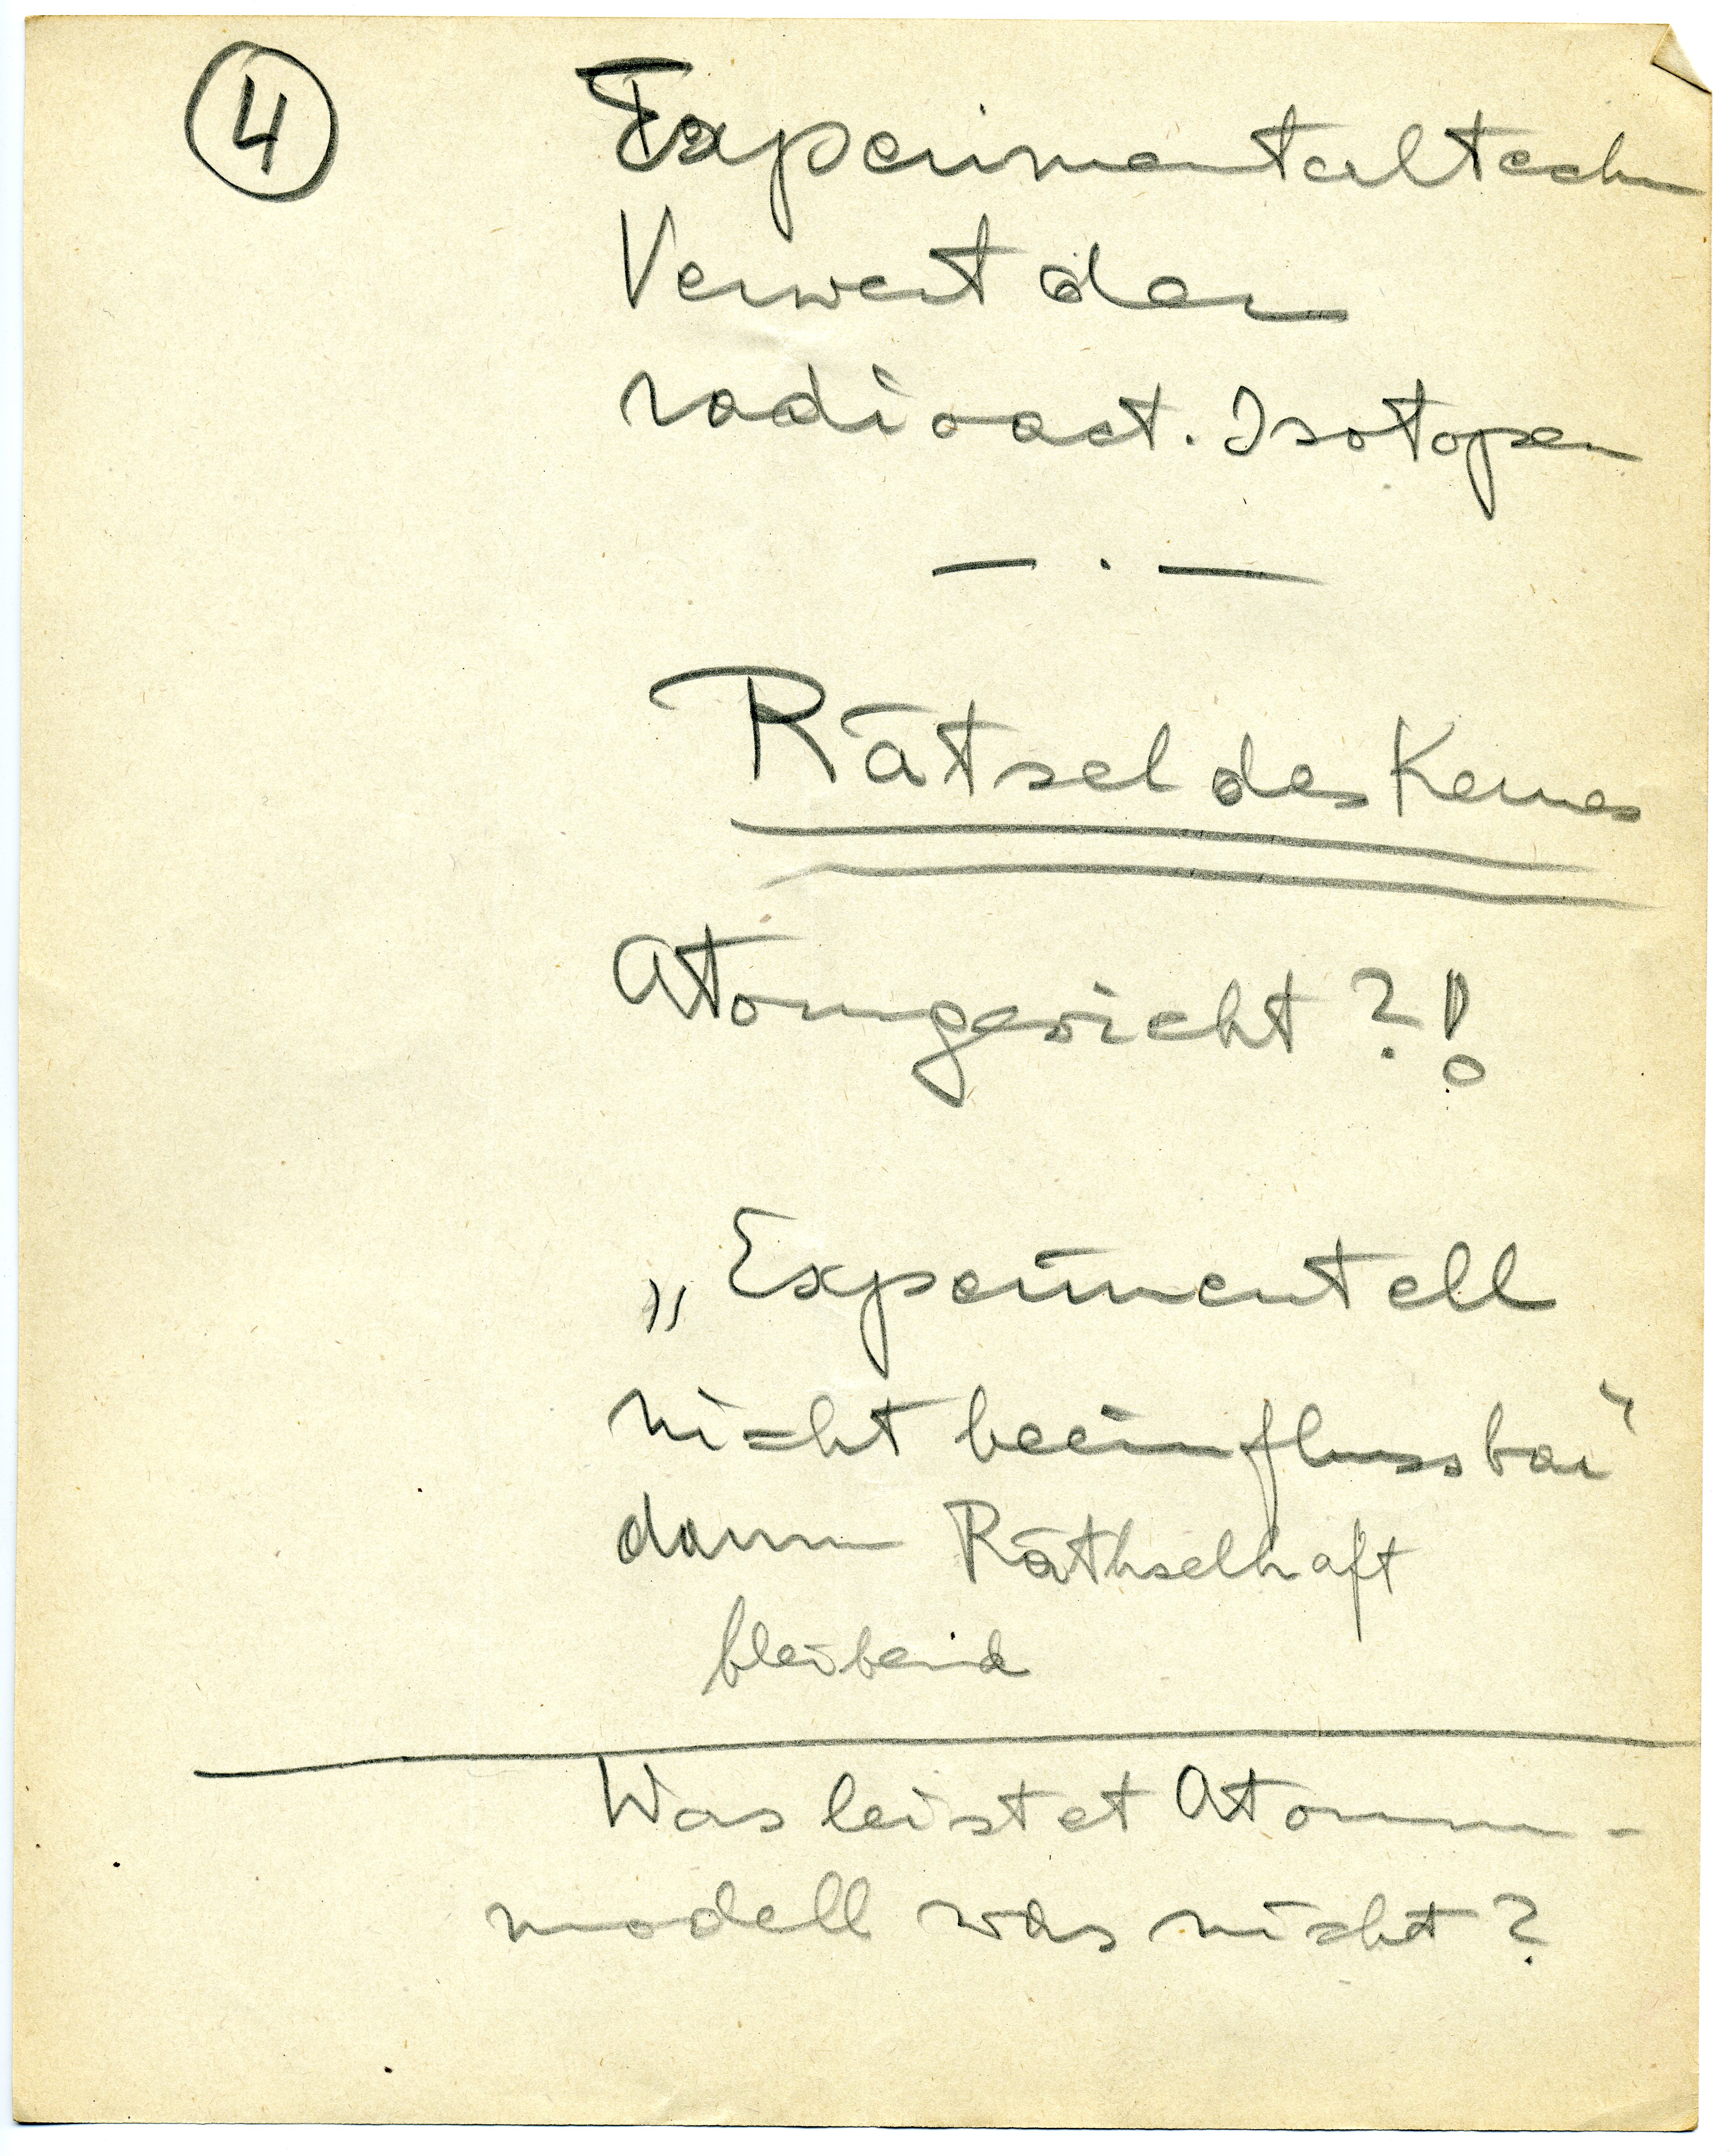 4
Experimentaltechn
Verwert der
radioact. Isotopen
— . —
Rätsel des Kernes
Atomgewicht ?!
„Experimentell
nicht beeinflussbar"
darum Räthselhaft
bleibend
Was leistet Atom-
modell was nicht?